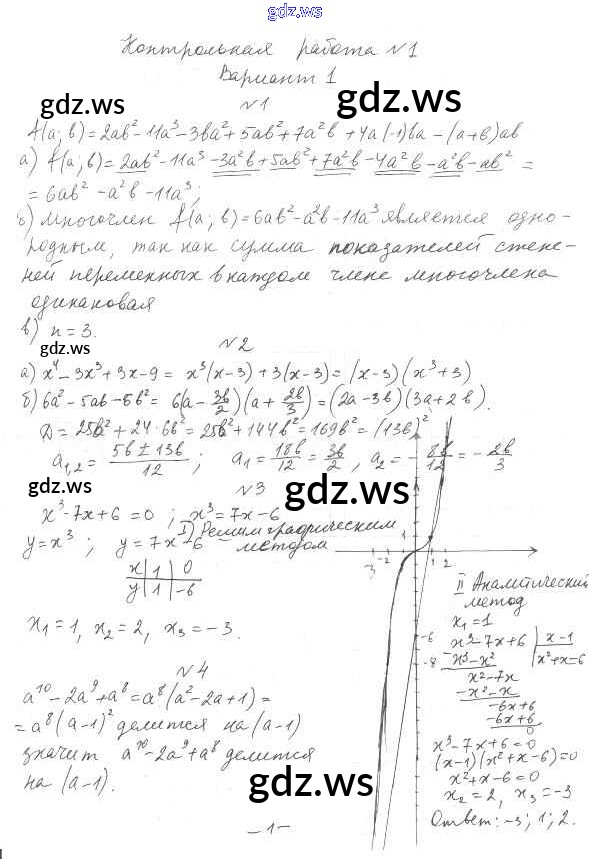 gdz.ws
Контрольная работа N1
Вариант 1
gdz.ws
gdz.ws
N1
f(a; b)=2ab²-11a³-3ba²+5ab²+7a²b+4a(-1)ba-(a+b)ab
а) f(a; b)=2ab²-11a³-3a²b+5ab²+7a²b-4a²b-a²b-ab² =
= 6ab²-a²b-11a³;
б) многочлен f(a; b)=6ab²-a²b-11a³ является одно-
родным, так как сумма показателей степе-
ней переменных в каждом члене многочлена
одинаковая
в) n=3.
gdz.ws
N2
gdz.ws
а) x⁴-3x³+3x-9= x³(x-3)+3(x-3)=(x-3)(x³+3)
б) 6a²-5ab-6b²= 6(a-3b/2)(a+2b/3)=(2a-3b)(3a+2b).
D=25b²+24·6b²=25b²+144b²=169b²=(13b)²
a₁,₂=(5b±13b)/12; a₁=18b/12=3b/2, a₂=-8b/12=-2b/3
gdz.ws
N3
gdz.ws
x³-7x+6=0; x³=7x-6
I) Решим графическим
методом
y=x³; y=7x-6
x|1|0
y|1|-6
x₁=1, x₂=2, x₃=-3.
-3 -2 1 2
-6
-8
II Аналитический
метод
x₁=1
x³-7x+6 | x-1
x³-x² | x²+x=6
x²-7x
-x²-x
-6x+6
-6x+6
0
x³-7x+6=0
(x-1)(x²+x-6)=0
x²+x-6=0
x₂=2, x₃=-3
Ответ: -3; 1; 2.
N4
gdz.ws
a¹⁰-2a⁹+a⁸=a⁸(a²-2a+1)=
=a⁸(a-1)² делится на (a-1)
значит a¹⁰-2a⁹+a⁸ делится
на (a-1).
gdz.ws
gdz.ws
-1-